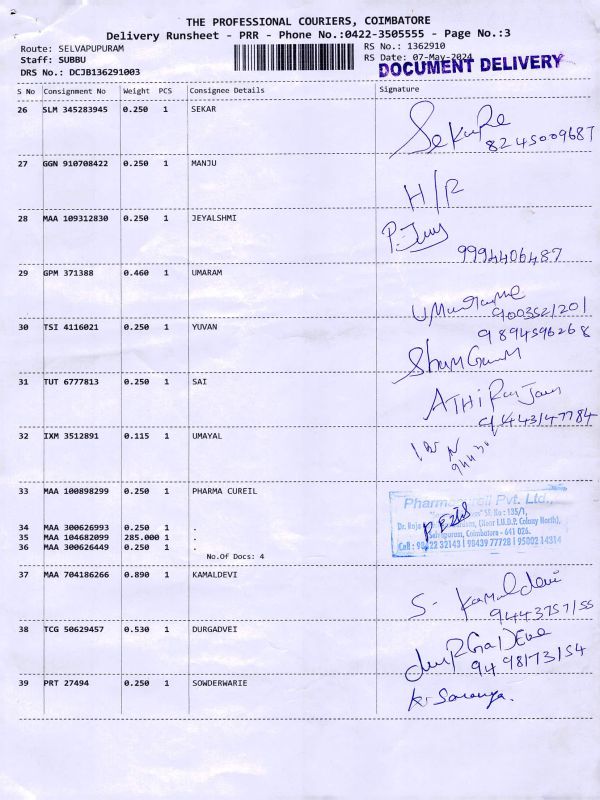 THE PROFESSIONAL COURIERS, COIMBATORE
Delivery Runsheet - PRR - Phone No.:0422-3505555 - Page No.:3
Route: SELVAPUPURAM RS No.: 1362910
Staff: SUBBU RS Date: 07-May-2024
DRS No.: DCJB136291003 DOCUMENT DELIVERY
S No Consignment No Weight PCS Consignee Details Signature
26 SLM 345283945 0.250 1 SEKAR
8245009687
27 GGN 910708422 0.250 1 MANJU
H/R
28 MAA 109312830 0.250 1 JEYALSHMI
9994406487
29 GPM 371388 0.460 1 UMARAM
9003521201
30 TSI 4116021 0.250 1 YUVAN
9894596268
31 TUT 6777813 0.250 1 SAI
32 IXM 3512891 0.115 1 UMAYAL
33 MAA 100898299 0.250 1 PHARMA CUREIL
34 MAA 300626993 0.250 1 .
35 MAA 104682099 285.000 1 .
36 MAA 300626449 0.250 1 .
No.Of Docs: 4
Pvt. Ltd.,
SF No : 135/1,
(Near L.M.D.P. Colony North),
Coimbatore - 641 026.
32143 | 90439 77728 | 95002 14314
37 MAA 704186266 0.890 1 KAMALDEVI
S- Kamaldevi
9443757155
38 TCG 50629457 0.530 1 DURGADVEI
9498173154
39 PRT 27494 0.250 1 SOWDERWARIE
K. Saranya.